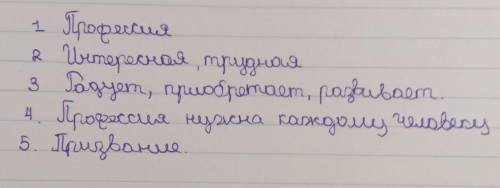 1 Профессия
2 Интересная, трудная
3 Радует, приобретает, развивает.
4. Профессия нужна каждому человеку
5. Призвание.